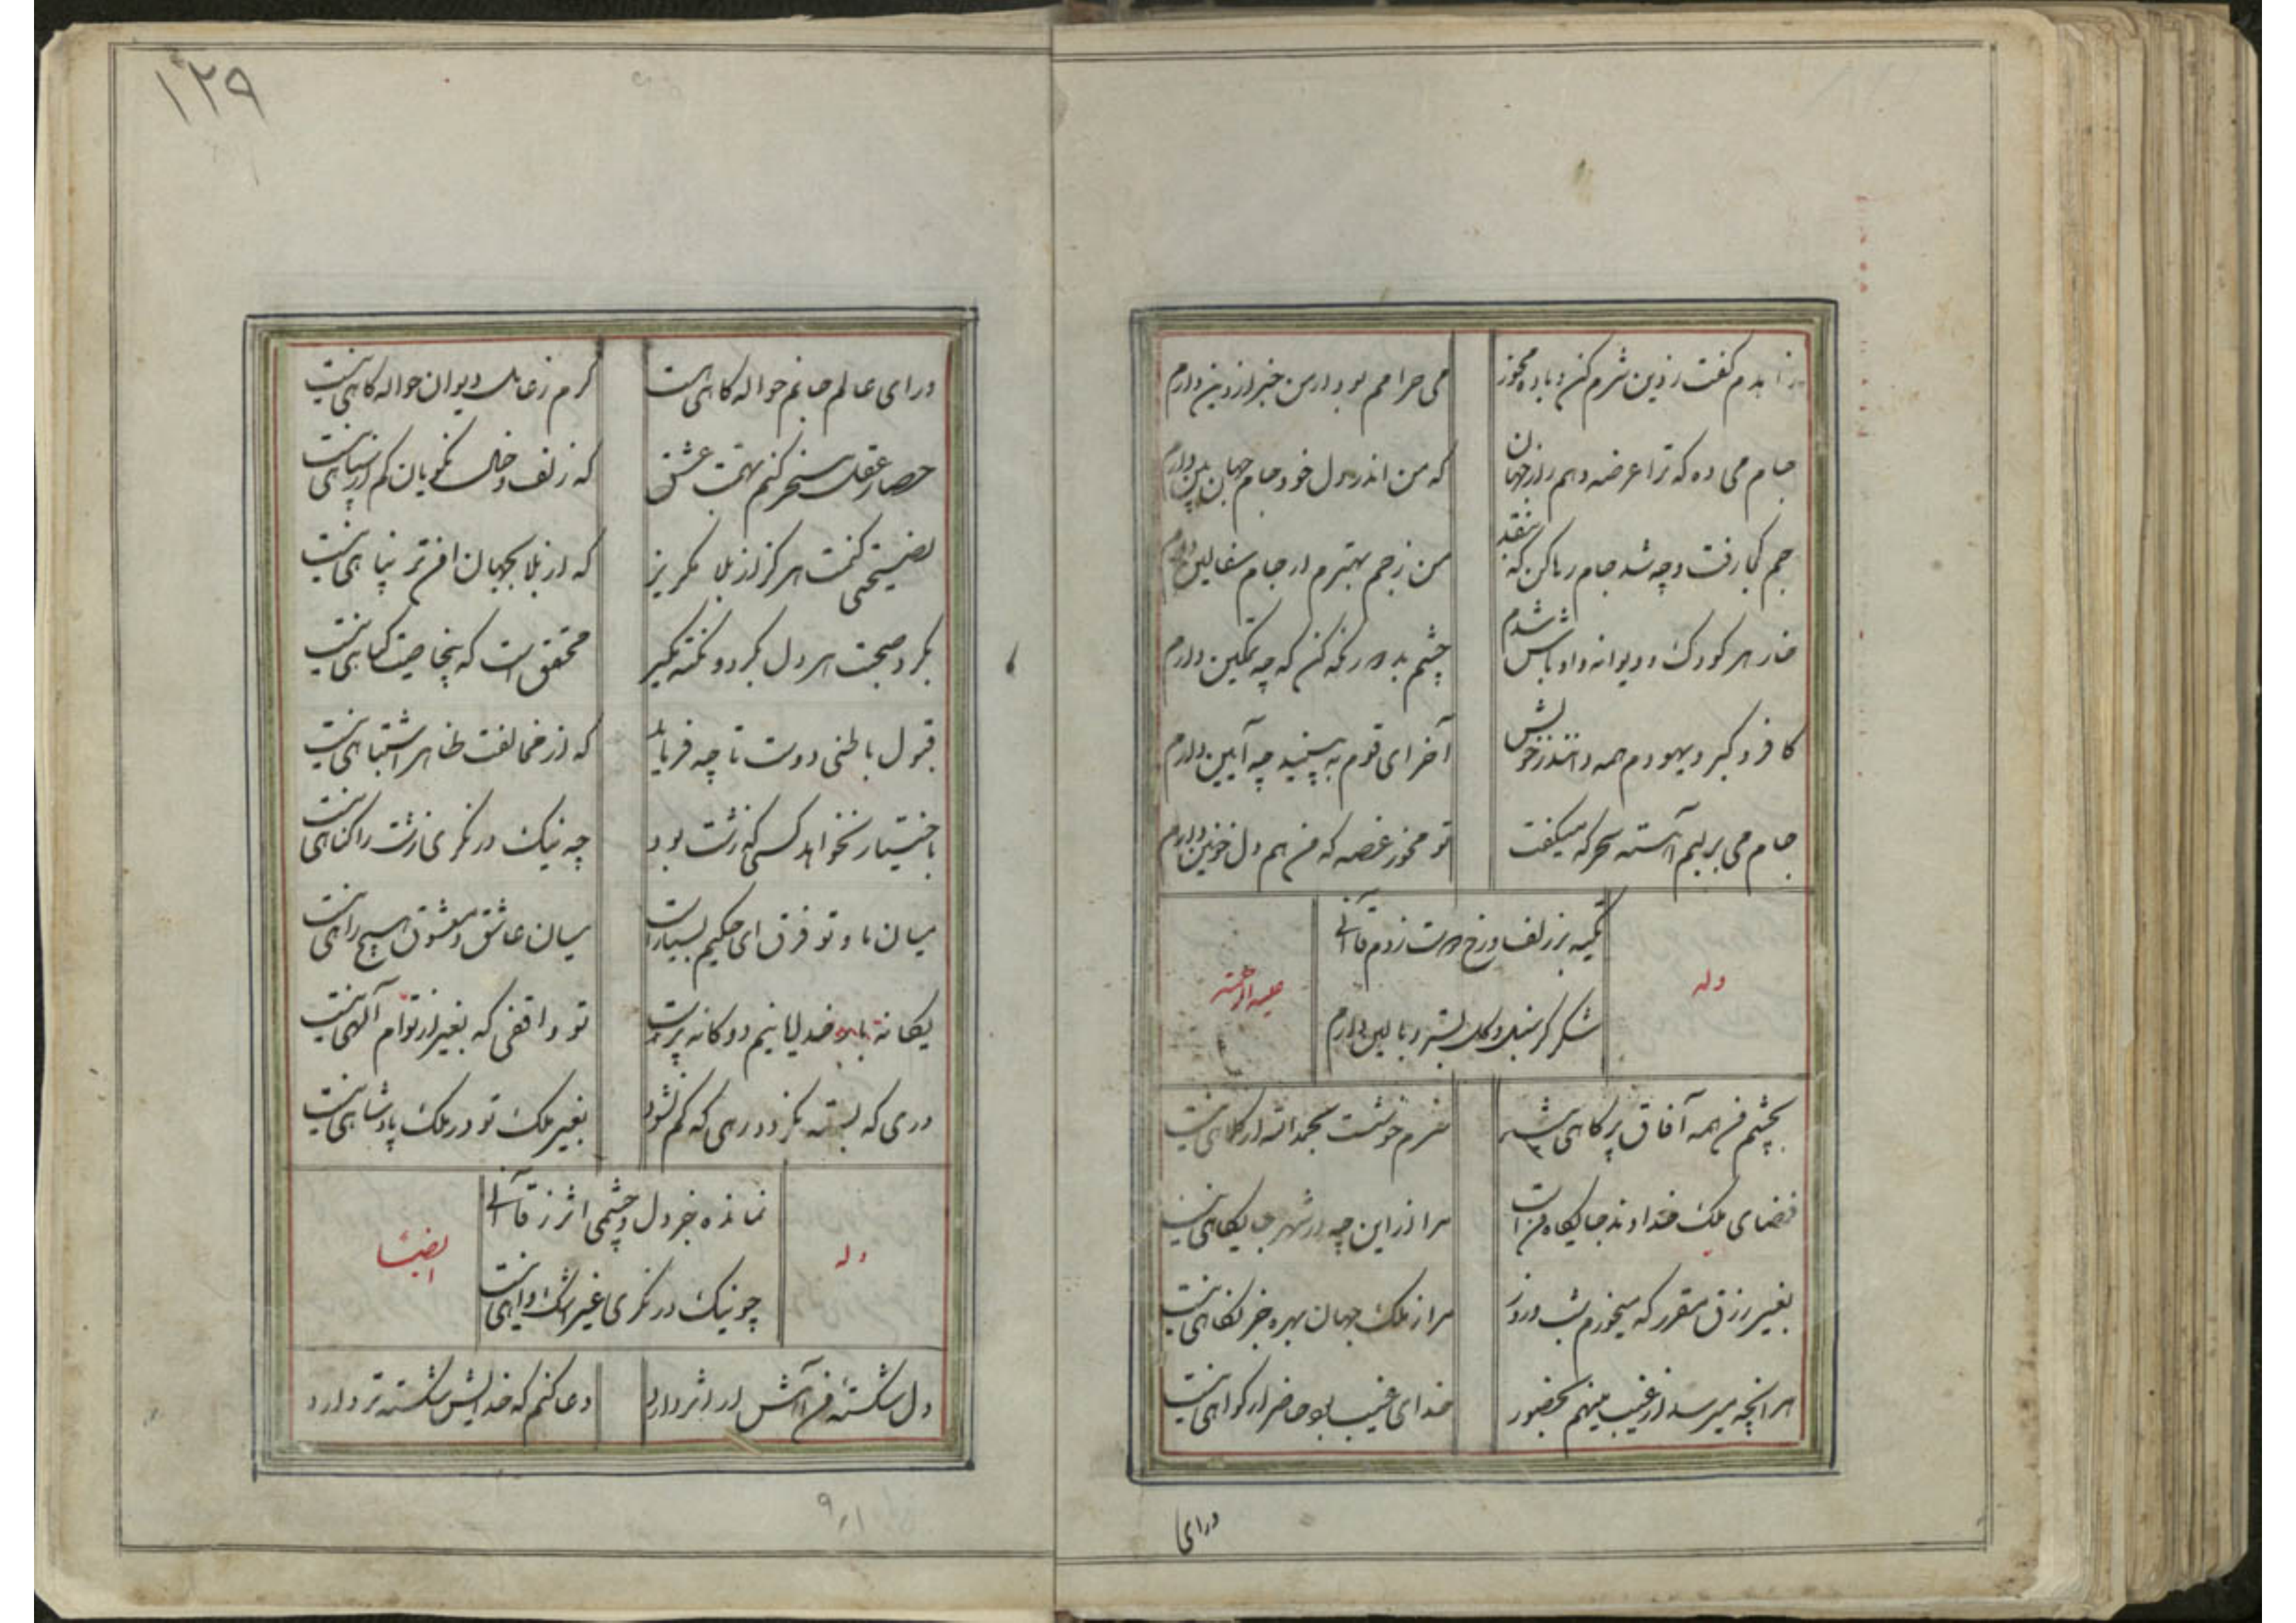 زاهدم گفت ز دین شرم کن و باده مخور
می حرامم بود ار من خبر از دین دارم
جام می ده که ترا عرضه دهم راز جهان
که من اندر دل خود جام جهان بین دارم
جم کجا رفت و چه شد جام رها کن که بنقد
من ز جم بهترم ار جام سفالین دارم
خار هر کودک و دیوانه و اوباش شدم
چشم بد دور نگه کن که چه تمکین دارم
کافر و گبر و یهودم همه دانند ز خویش
آخر ای قوم ببینید چه آیین دارم
جام می بر لبم آهسته سحرگه میگفت
تو مخور غصه که من هم دل خونین دارم
وله
تکیه بر زلف و رخ دوست زدم قاآنی
شکر کز سنبل و گل بستر و بالین دارم
علیه الرحمة
بچشم من همه آفاق پر کاهی نیست
سرم خوشست بحمدالله ار کلاهی نیست
فضای ملک خداوند جایگاه من است
مرا از این چه در شهر جایگاهی نیست
بغیر رزق مقرر که میخورم شب و روز
مرا ز ملک جهان بهره جز نگاهی نیست
هر آنچه میرسد از غیب مینهم بحضور
خدای غیب بود حاضر ار گواهی نیست
ورای
۱۲۹
ورای عالم جانم حواله گاهی هست
گرم ز عامل دیوان حواله گاهی نیست
حصار عقل مسخر کنم بهمت عشق
که زلف و خال نکویان کم از سپاهی نیست
نصیحتی کنمت هرگز از بلا مگریز
که از بلا بجهان امن تر پناهی نیست
بگرد صحبت هر دل بگرد و نکته مگیر
محقق است که بیخاصیت گیاهی نیست
قبول باطنی دوست تا چه فرماید
که از مخالفت ظاهر اشتباهی نیست
باختیار نخواهد کسی که زشت بود
چه نیک در نگری زشت را گناهی نیست
میان ما و تو فرق ای حکیم بسیار است
میان عاشق و معشوق هیچ راهی نیست
یگانه بار خدایا نیم دوگانه پرست
تو واقفی که بغیر از توام آلهی نیست
دری که بسته نگردد رهی که گم نشود
بغیر ملک تو در ملک پادشاهی نیست
وله
نمانده جز دل و چشمی اثر ز قاآنی
چو نیک در نگری غیر اشک و آهی نیست
ایضا
دل شکسته من آتش ار اثر دارد
دعا کنم که خدایش شکسته تر دارد